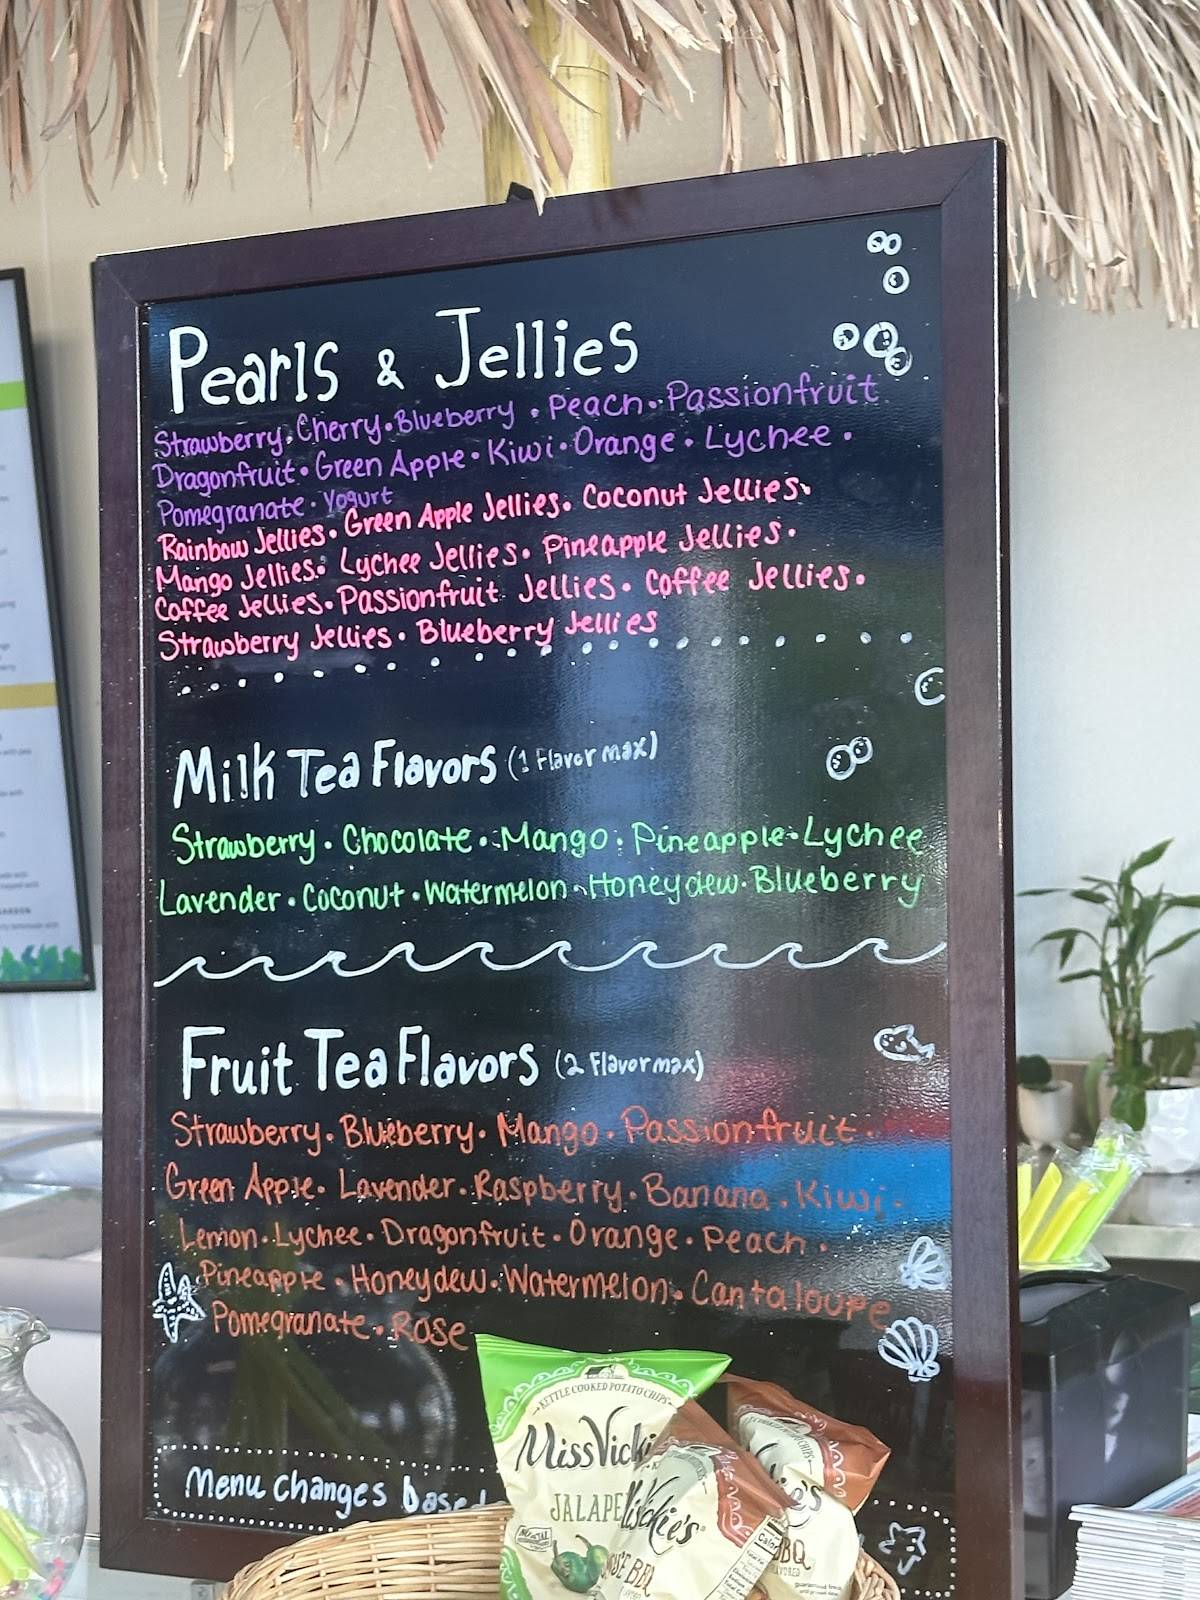 Pearls & Jellies
Strawberry • Cherry • Blueberry • Peach • Passionfruit
Dragonfruit • Green Apple • Kiwi • Orange • Lychee •
Pomegranate • Yogurt
Rainbow Jellies • Green Apple Jellies • Coconut Jellies •
Mango Jellies • Lychee Jellies • Pineapple Jellies •
Coffee Jellies • Passionfruit Jellies • Coffee Jellies •
Strawberry Jellies • Blueberry Jellies
Milk Tea Flavors (1 Flavor max)
Strawberry • Chocolate • Mango • Pineapple • Lychee
Lavender • Coconut • Watermelon • Honeydew • Blueberry
Fruit Tea Flavors (2 Flavor max)
Strawberry • Blueberry • Mango • Passionfruit •
Green Apple • Lavender • Raspberry • Banana • Kiwi •
Lemon • Lychee • Dragonfruit • Orange • Peach •
Pineapple • Honeydew • Watermelon • Cantaloupe
Pomegranate • Rose
Menu changes based
KETTLE COOKED POTATO CHIPS
Miss Vicki
JALAPE
BBQ